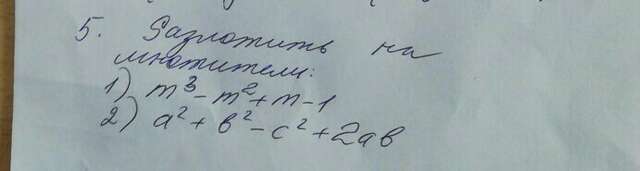 5. Разложить на
множители:
1) m³-m²+m-1
2) a²+b²-c²+2ab